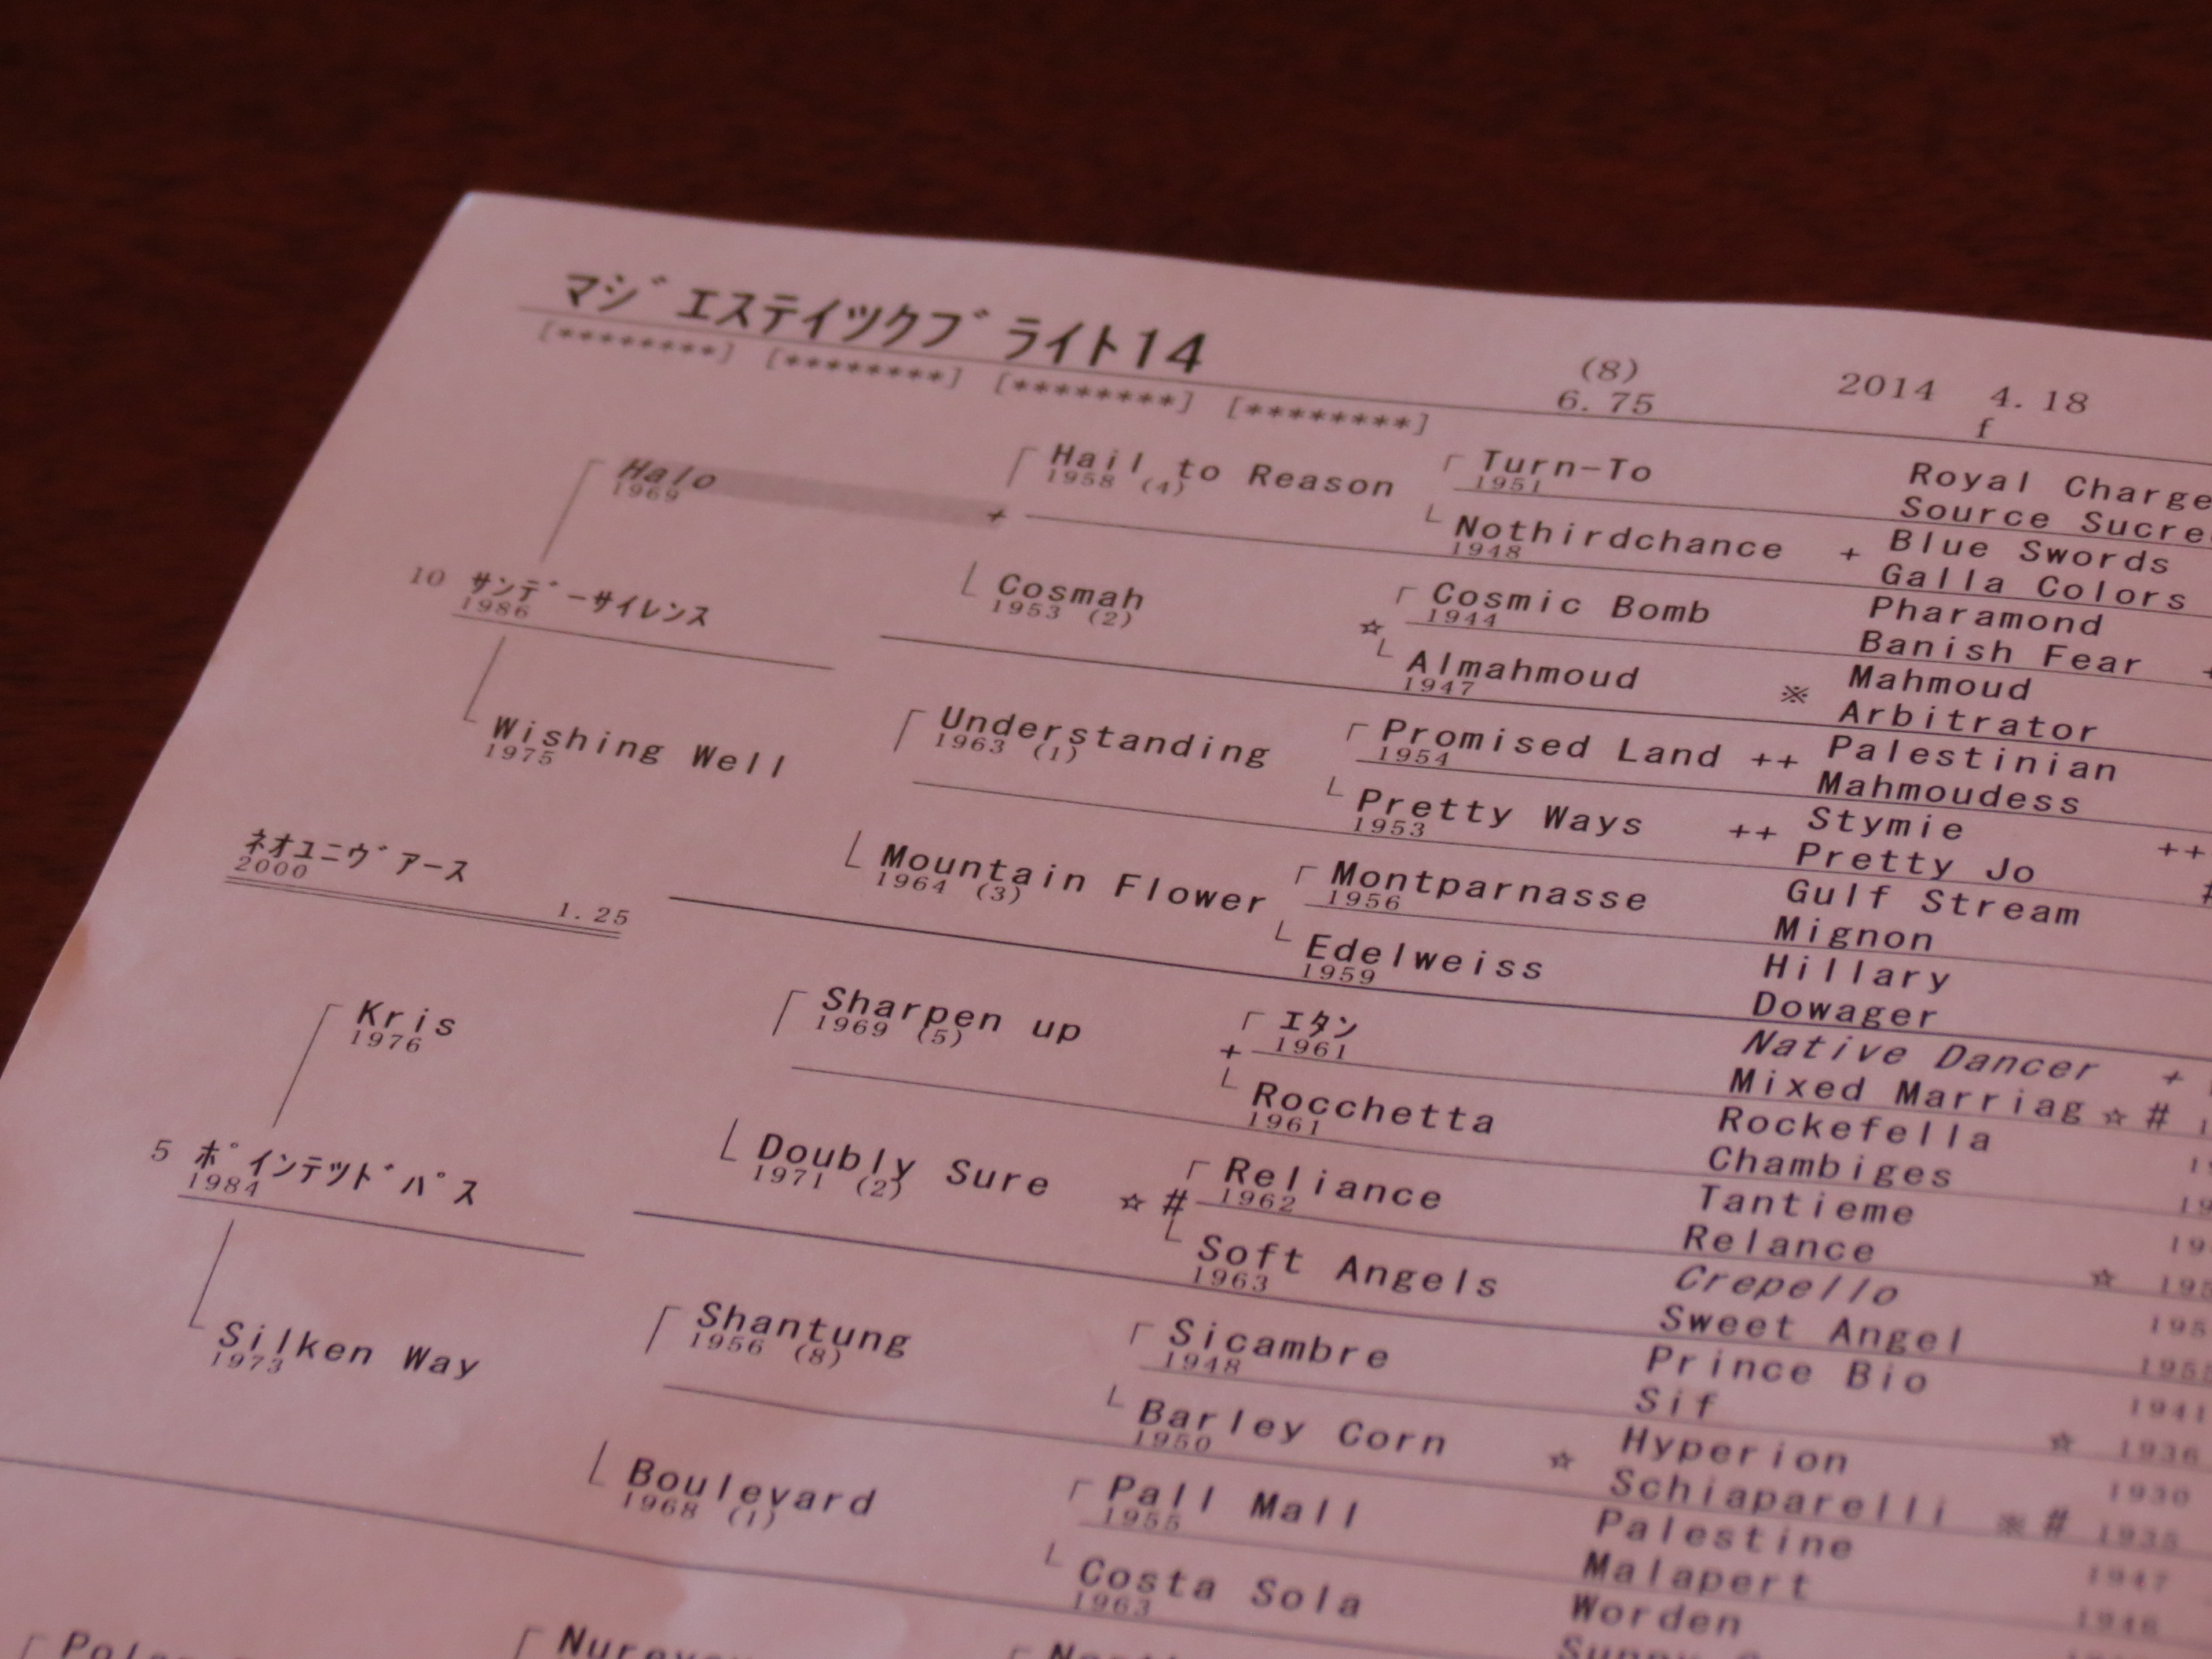 マジエステイツクブライト14
(8)
6.75
2014 4.18
f
[********] [********] [********] [********]
Halo
1969
+
Hail to Reason
1958 (4)
Turn-To
1951
Royal Charge
Source Sucre
Nothirdchance
1948
+ Blue Swords
Galla Colors
10 サンデーサイレンス
1986
Cosmah
1953 (2)
☆
Cosmic Bomb
1944
Pharamond
Banish Fear +
Almahmoud
1947
※ Mahmoud
Arbitrator
Wishing Well
1975
Understanding
1963 (1)
Promised Land
1954
++ Palestinian
Mahmoudess
Pretty Ways
1953
++ Stymie ++
Pretty Jo #
ネオユニヴアース
2000
1.25
Mountain Flower
1964 (3)
Montparnasse
1956
Gulf Stream
Mignon
Edelweiss
1959
Hillary
Dowager
Kris
1976
Sharpen up
1969 (5)
+
エタン
1961
Native Dancer +
Mixed Marriag ☆ #
Rocchetta
1961
Rockefella
Chambiges
5 ポインテツドパス
1984
Doubly Sure
1971 (2)
☆ #
Reliance
1962
Tantieme
Relance
Soft Angels
1963
Crepello ☆
Sweet Angel
Silken Way
1973
Shantung
1956 (8)
Sicambre
1948
Prince Bio 1941
Sif ☆ 1936
Barley Corn
1950
☆ Hyperion 1930
Schiaparelli ※ # 1935
Boulevard
1968 (1)
Pall Mall
1955
Palestine 1947
Malapert 1946
Costa Sola
1963
Worden